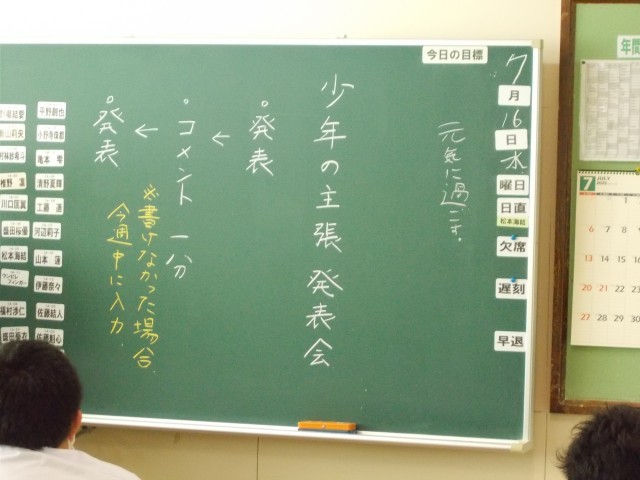 今日の目標
7
月
16
日
水
曜日
日直
松本海結
欠席
遅刻
早退
元気に過ごす。
少年の主張 発表会
発表
↓
コメント 一分
↓
発表
※書けなかった場合、
今週中に入力。
平野創也
亀本 雫
清野夏輝
工藤 遙
河辺莉子
山本 蓮
伊藤奈々
佐藤結人
川口匡翼
盛田桜優
松本海結
福村渉仁
年間
7
JULY
1
6
7
8
13
14
15
20
21
22
27
28
29